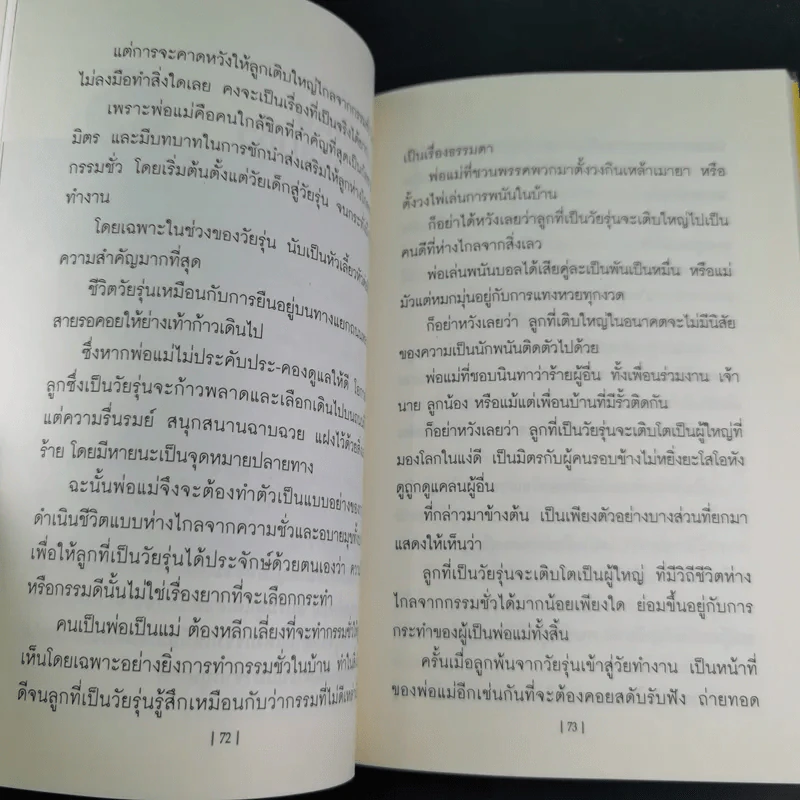 แต่การจะคาดหวังให้ลูกเติบใหญ่ไกลจากกรรมชั่ว
ไม่ลงมือทำสิ่งใดเลย คงจะเป็นเรื่องที่เป็นจริงได้ยาก
เพราะพ่อแม่คือคนใกล้ชิดที่สำคัญที่สุดเป็น
มิตร และมีบทบาทในการชักนำส่งเสริมให้ลูกห่างไกล
กรรมชั่ว โดยเริ่มต้นตั้งแต่วัยเด็กสู่วัยรุ่น จนกระทั่ง
ทำงาน
โดยเฉพาะในช่วงของวัยรุ่น นับเป็นหัวเลี้ยว
ความสำคัญมากที่สุด
ชีวิตวัยรุ่นเหมือนกับการยืนอยู่บนทางแยก
สายรอคอยให้ย่างเท้าก้าวเดินไป
ซึ่งหากพ่อแม่ไม่ประคับประ-คองดูแลให้ดี
ลูกซึ่งเป็นวัยรุ่นจะก้าวพลาดและเลือกเดินไปบน
แต่ความรื่นรมย์ สนุกสนานฉาบฉวย แฝงไว้ด้วย
ร้าย โดยมีหายนะเป็นจุดหมายปลายทาง
ฉะนั้นพ่อแม่จึงจะต้องทำตัวเป็นแบบอย่างของ
ดำเนินชีวิตแบบห่างไกลจากความชั่วและอบายมุข
เพื่อให้ลูกที่เป็นวัยรุ่นได้ประจักษ์ด้วยตนเองว่า
หรือกรรมดีนั้นไม่ใช่เรื่องยากที่จะเลือกกระทำ
คนเป็นพ่อเป็นแม่ ต้องหลีกเลี่ยงที่จะทำกรรมชั่ว
เห็นโดยเฉพาะอย่างยิ่งการทำกรรมชั่วในบ้าน ทำใน
ดีจนลูกที่เป็นวัยรุ่นรู้สึกเหมือนกับว่ากรรมที่ไม่ดี
| 72 |
เป็นเรื่องธรรมดา
พ่อแม่ที่ชวนพรรคพวกมาตั้งวงกินเหล้าเมายา หรือ
ตั้งวงไพ่เล่นการพนันในบ้าน
ก็อย่าได้หวังเลยว่าลูกที่เป็นวัยรุ่นจะเติบใหญ่ไปเป็น
คนดีที่ห่างไกลจากสิ่งเลว
พ่อเล่นพนันบอลได้เสียคู่ละเป็นพันเป็นหมื่น หรือแม่
มัวแต่หมกมุ่นอยู่กับการแทงหวยทุกงวด
ก็อย่าหวังเลยว่า ลูกที่เติบใหญ่ในอนาคตจะไม่มีนิสัย
ของความเป็นนักพนันติดตัวไปด้วย
พ่อแม่ที่ชอบนินทาว่าร้ายผู้อื่น ทั้งเพื่อนร่วมงาน เจ้า
นาย ลูกน้อง หรือแม้แต่เพื่อนบ้านที่มีรั้วติดกัน
ก็อย่าหวังเลยว่า ลูกที่เป็นวัยรุ่นจะเติบโตเป็นผู้ใหญ่ที่
มองโลกในแง่ดี เป็นมิตรกับผู้คนรอบข้างไม่หยิ่งยะโสโอหัง
ดูถูกดูแคลนผู้อื่น
ที่กล่าวมาข้างต้น เป็นเพียงตัวอย่างบางส่วนที่ยกมา
แสดงให้เห็นว่า
ลูกที่เป็นวัยรุ่นจะเติบโตเป็นผู้ใหญ่ ที่มีวิถีชีวิตห่าง
ไกลจากกรรมชั่วได้มากน้อยเพียงใด ย่อมขึ้นอยู่กับการ
กระทำของผู้เป็นพ่อแม่ทั้งสิ้น
ครั้นเมื่อลูกพ้นจากวัยรุ่นเข้าสู่วัยทำงาน เป็นหน้าที่
ของพ่อแม่อีกเช่นกันที่จะต้องคอยสดับรับฟัง ถ่ายทอด
| 73 |